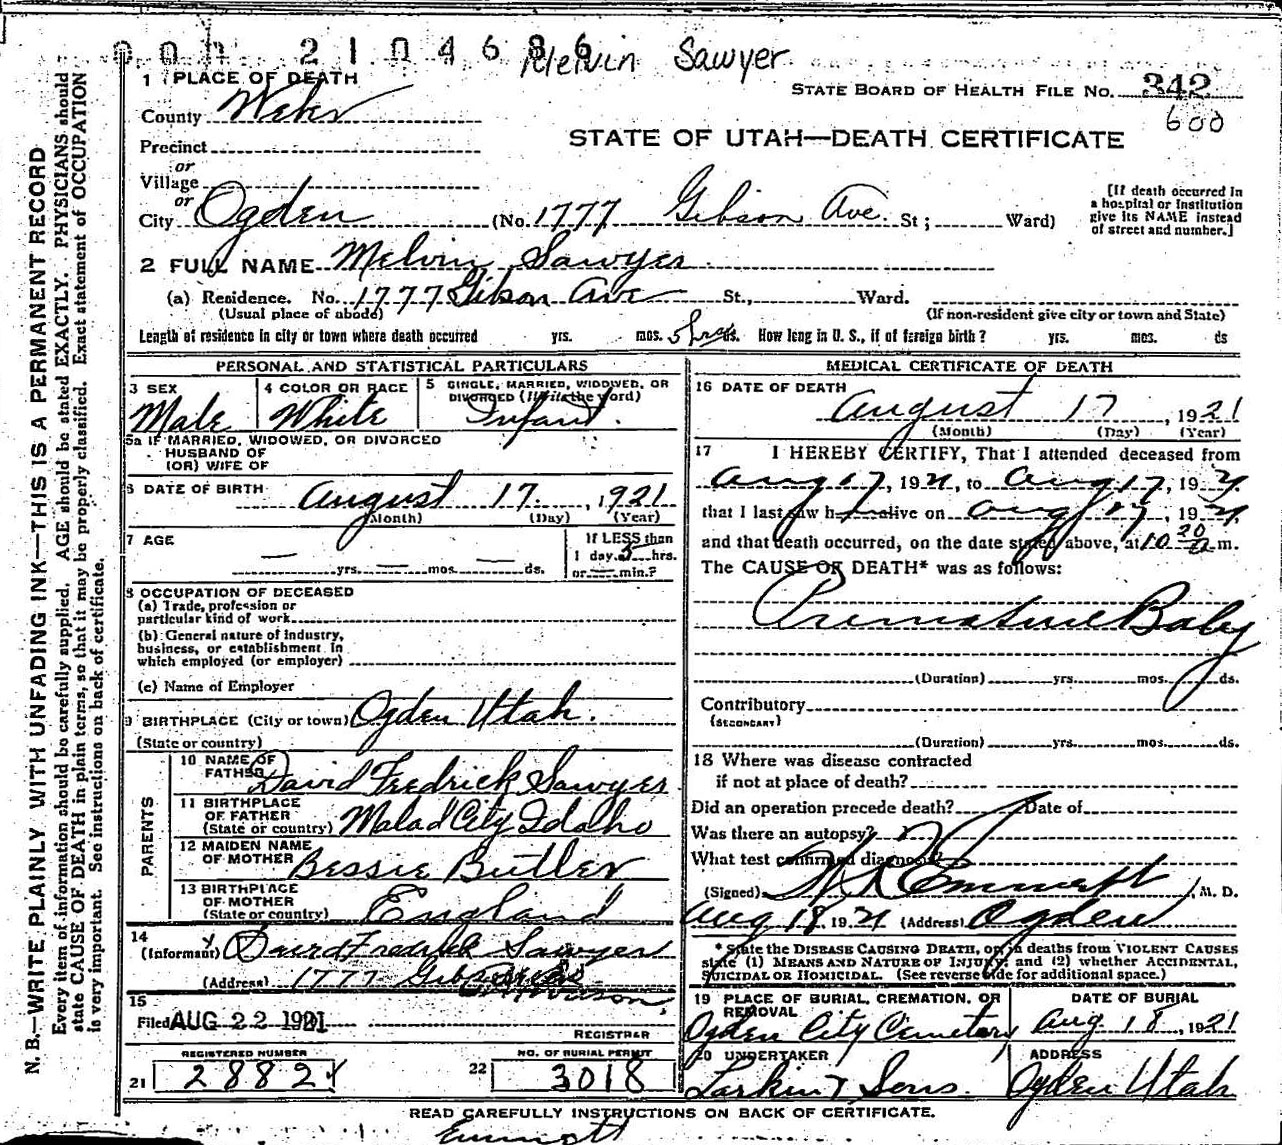 002104686
Melvin Sawyer
1 PLACE OF DEATH
STATE BOARD OF HEALTH FILE NO. 342
600
County Weber
STATE OF UTAH—DEATH CERTIFICATE
Precinct
or
Village
or
City Ogden (No. 1777 Gibson Ave. St; Ward)
[If death occurred in a hospital or institution give its NAME instead of street and number.]
2 FULL NAME Melvin Sawyer
(a) Residence. No. 1777 Gibson Ave St., Ward.
(Usual place of abode)
(If non-resident give city or town and State)
Length of residence in city or town where death occurred yrs. mos. 5 hrs ds. How long in U. S., if of foreign birth? yrs. mos. ds
PERSONAL AND STATISTICAL PARTICULARS
3 SEX
Male
4 COLOR OR RACE
White
5 SINGLE, MARRIED, WIDOWED, OR DIVORCED (Write the word)
Infant.
5a IF MARRIED, WIDOWED, OR DIVORCED
HUSBAND OF
(OR) WIFE OF
6 DATE OF BIRTH August 17. , 1921
(Month) (Day) (Year)
7 AGE
— yrs. — mos. — ds.
If LESS than
1 day 5 hrs.
or — min.?
8 OCCUPATION OF DECEASED
(a) Trade, profession or
particular kind of work
(b) General nature of industry,
business, or establishment in
which employed (or employer)
(c) Name of Employer
9 BIRTHPLACE (City or town) Ogden Utah.
(State or country)
PARENTS
10 NAME OF FATHER David Fredrick Sawyer
11 BIRTHPLACE OF FATHER
(State or country) Malad City Idaho
12 MAIDEN NAME OF MOTHER Bessie Butler
13 BIRTHPLACE OF MOTHER
(State or country) England
14
(Informant) David Fredrick Sawyer
(Address) 1777 Gibson
15
Filed AUG 22 1921
REGISTRAR
REGISTERED NUMBER
21 2882
NO. OF BURIAL PERMIT
22 3018
MEDICAL CERTIFICATE OF DEATH
16 DATE OF DEATH
August 17 , 1921
(Month) (Day) (Year)
17 I HEREBY CERTIFY, That I attended deceased from
Aug 17, 1921, to Aug 17, 1921.
that I last saw h alive on Aug 17, 1921
and that death occurred, on the date stated above, at 10 20 a m.
The CAUSE OF DEATH* was as follows:
Premature Baby
(Duration) yrs. mos. ds.
Contributory
(SECONDARY)
(Duration) yrs. mos. ds.
18 Where was disease contracted
if not at place of death?
Did an operation precede death? Date of
Was there an autopsy?
What test confirmed diagnosis?
(Signed) Emmett, M. D.
Aug 18, 1921 (Address) Ogden
* State the DISEASE CAUSING DEATH, or, in deaths from VIOLENT CAUSES
state (1) MEANS AND NATURE OF INJURY; and (2) whether ACCIDENTAL,
SUICIDAL OR HOMICIDAL. (See reverse side for additional space.)
19 PLACE OF BURIAL, CREMATION, OR REMOVAL
Ogden City Cemetery
DATE OF BURIAL
Aug 18, 1921
20 UNDERTAKER
Larkin & Sons.
ADDRESS
Ogden Utah
READ CAREFULLY INSTRUCTIONS ON BACK OF CERTIFICATE.
Emmett
N. B.—WRITE PLAINLY WITH UNFADING INK—THIS IS A PERMANENT RECORD
Every item of information should be carefully supplied. AGE should be stated EXACTLY. PHYSICIANS should
state CAUSE OF DEATH in plain terms, so that it may be properly classified. Exact statement of OCCUPATION
is very important. See instructions on back of certificate.